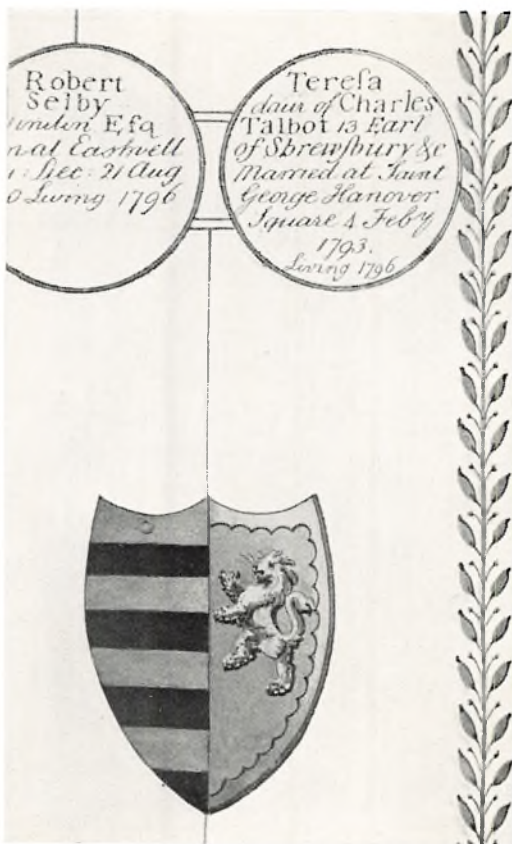 Robert
Selby
Eſq
at Eastwell
21 Aug
0 Living 1796
Tereſa
daur of Charles
Talbot 13 Earl
of Shrewſbury &c
Married at Saint
George Hanover
Square 4 Feby
1793.
Living 1796